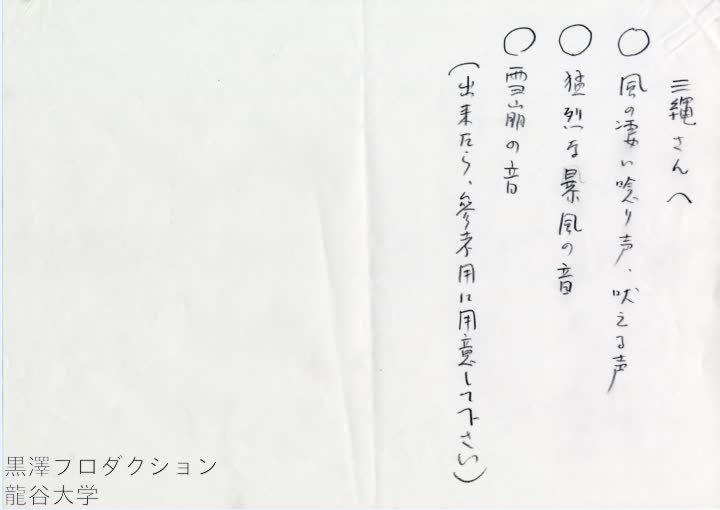 三縄さんへ
○風の凄い唸り声、吠える声
○猛烈な暴風の音
○雪崩の音
(出来たら、参考用に用意して下さい)
黒澤フロダクション
龍谷大学